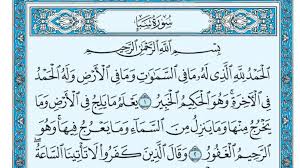 سُورَةُ سَبَإٍ
بِسْمِ ٱللَّهِ ٱلرَّحْمَٰنِ ٱلرَّحِيمِ
ٱلْحَمْدُ لِلَّهِ ٱلَّذِى لَهُۥ مَا فِى ٱلسَّمَٰوَٰتِ وَمَا فِى ٱلْأَرْضِ وَلَهُ ٱلْحَمْدُ
فِى ٱلْءَاخِرَةِ وَهُوَ ٱلْحَكِيمُ ٱلْخَبِيرُ ١ يَعْلَمُ مَا يَلِجُ فِى ٱلْأَرْضِ وَمَا
يَخْرُجُ مِنْهَا وَمَا يَنزِلُ مِنَ ٱلسَّمَآءِ وَمَا يَعْرُجُ فِيهَا وَهُوَ
ٱلرَّحِيمُ ٱلْغَفُورُ ٢ وَقَالَ ٱلَّذِينَ كَفَرُوا۟ لَا تَأْتِينَا ٱلسَّاعَةُ